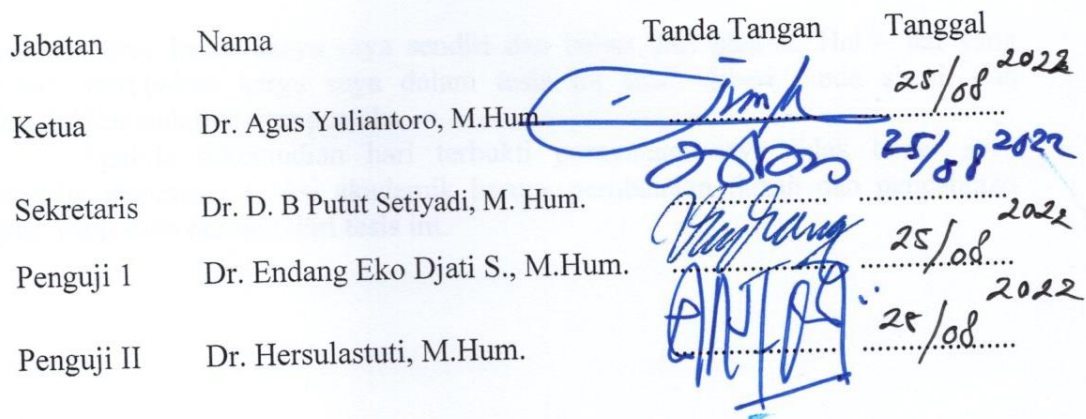 Jabatan Nama Tanda Tangan Tanggal
Ketua Dr. Agus Yuliantoro, M.Hum. 25/08 2022
Sekretaris Dr. D. B Putut Setiyadi, M. Hum. 25/08 2022
Penguji 1 Dr. Endang Eko Djati S., M.Hum. 25/08 2022
Penguji II Dr. Hersulastuti, M.Hum. 25/08 2022